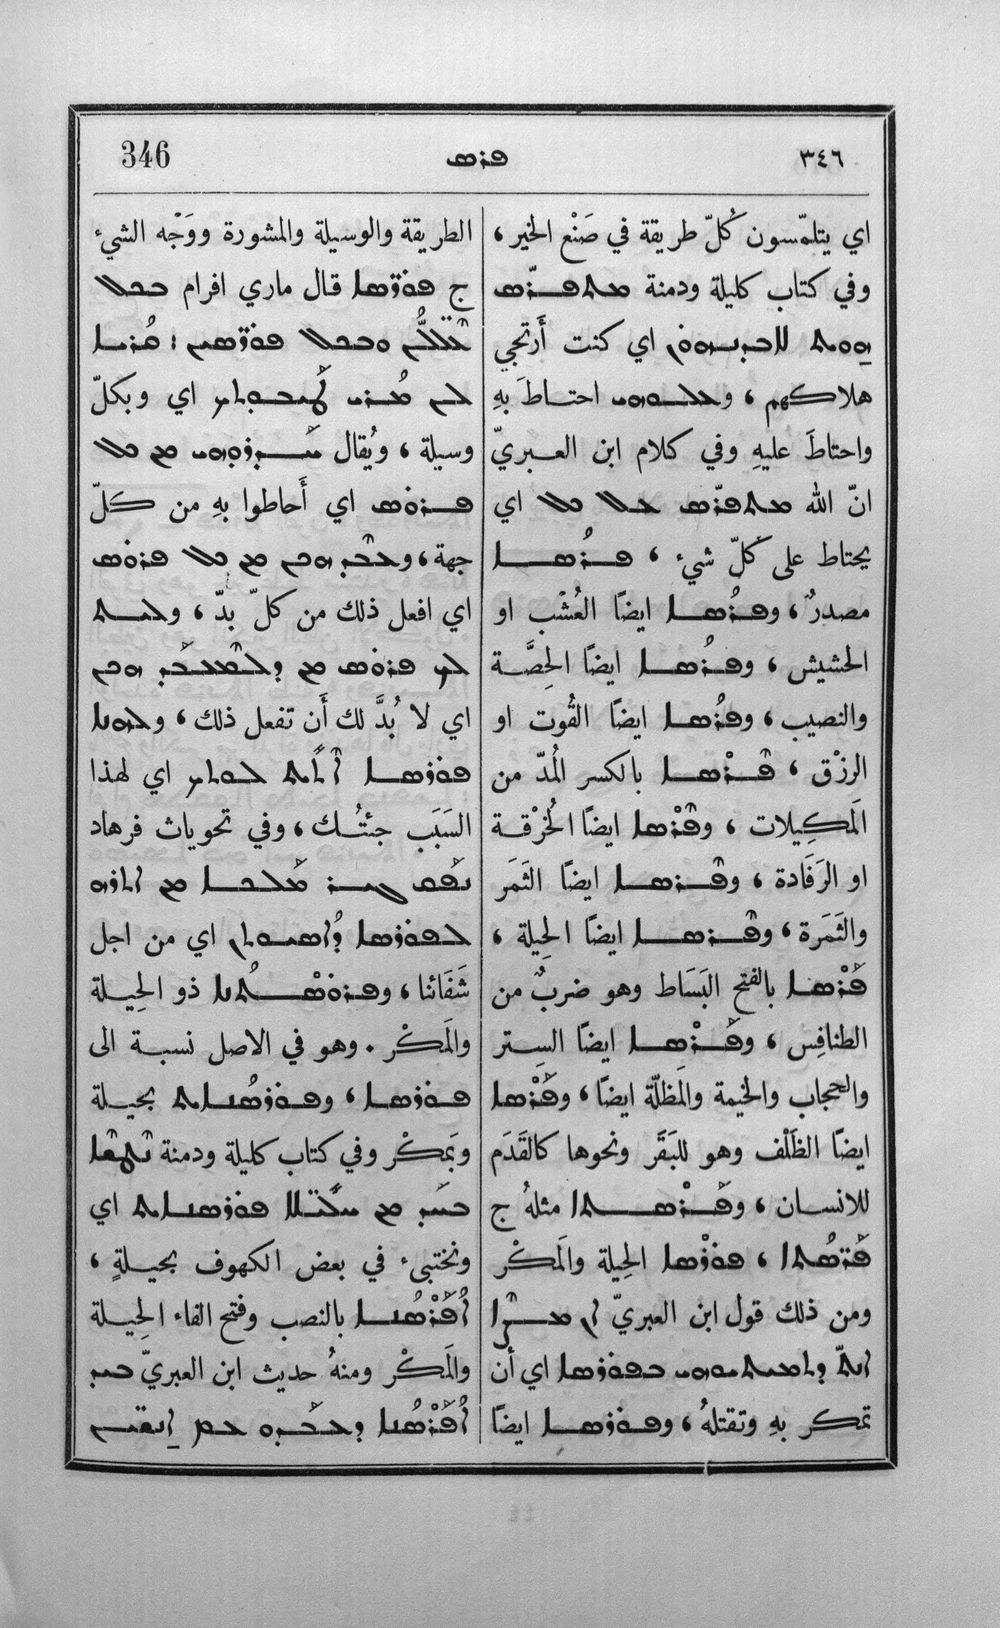 346 ܦܪܣ ٣٤٦
اي يتلمّسون كُلّ طريقة في صَنْع الخير ،
وفي كتاب كليلة ودمنة ܡܬܦܪܣ
ܗܘܝܬ ܠܐܒܕܢܗܘܢ اي كنت أَرتجي
هلاكهم ، و ܥܠܘܗܝ احتاطَ بهِ
واحتاطَ عليهِ وفي كلام ابن العبريّ
انّ الله ܡܬܦܪܣ ܥܠ ܟܠ اي
يحتاط على كُلّ شيء ، ܦܪܳܣܐ
مصدرٌ ، وܦܪܳܣܐ ايضًا العُشْب او
الحشيش ، وܦܪܳܣܐ ايضًا الحِصَّة
والنصيب ، وܦܪܳܣܐ ايضًا القُوت او
الرزْق ، ܦܶܪܣܐ بالكسر المُدّ من
المَكِيلات ، وܦܶܪܣܐ ايضًا الخُرْقة
او الرَفَادة ، وܦܶܪܣܐ ايضًا الثَمَر
والثَمَرة ، وܦܶܪܣܐ ايضًا الحِيلة ،
ܦܰܪܣܐ بالفتح البَسَاط وهو ضربٌ من
الطنافِس ، وܦܰܪܣܐ ايضًا السِتر
والحجاب والخيمة والمِظلّة ايضًا ، وܦܰܪܣܐ
ايضًا الظَلْف وهو للبَقَر ونحوها كالقَدَم
للانسان ، وܦܰܪܣܬܐ مثلهُ ج
ܦܰܪ̈ܣܳܬܐ ، ܦܘܪܣܐ الحِيلة والمَكْر
ومن ذلك قول ابن العبريّ ܐܢ ܡܨܶܐ
ܐܢܬ ܕܬܡܝܬܝܘܗܝ ܒܦܘܪܣܐ اي أن
تمكر بهِ وتقتلهُ ، وܦܘܪܣܐ ايضًا
الطريقة والوسيلة والمشورة ووَجْه الشيء
ج ܦܘܪ̈ܣܐ قال ماري افرام ܒܟܠ
ܘܒܟܠ ܦܘܪ̈ܣܝܢ ܆ ܡܳܪܝܐ
ܠܝ ܡܳܪܝ ܛܰܝܒܘܬܟ اي وبكلّ
وسيلة ، ويُقال ܚܰܕܪܘܗܝ ܡܢ ܟܠ
ܦܪܘܣ اي أَحاطوا بهِ من كلّ
جهة ، وܥܒܶܕ ܗܕܐ ܡܢ ܟܠ ܦܪܘܣ
اي افعل ذلك من كلّ بدّ ، وܠܝܬ
ܠܟ ܦܪܘܣ ܡܢ ܕܠܡܶܥܒܰܕ ܗܕܐ
اي لا بُدَّ لك أَن تفعل ذلك ، وܠܗܢܐ
ܦܘܪܣܐ ܐܶܬܝܬ ܠܘܬܟ اي لهذا
السَبَب جئتُك ، وفي تحويات فرهاد
ܢܦܰܩ ܡܰܠܟܐ ܡܢ ܐܬܪܗ
ܠܦܘܪܣܐ ܕܐܣܝܘܬܢ اي من اجل
شَفَائنا ، وܦܘܪܣܳܬܢܐ ذو الحِيلة
والمَكْر . وهو في الاصل نسبة الى
ܦܘܪܣܐ ، وܦܘܪܣܳܢܐܝܬ بحيلة
وبَمَكْر وفي كتاب كليلة ودمنة ܢܛܫܶܐ
ܒܚܰܕ ܡܢ ܦܘܪܣܢܐܝܬ اي
ونختبىء في بعض الكهوف بحيلةٍ ،
ܐܳܦܰܪܣܳܢܐ بالنصب وفتح الفاء الحِيلة
والمَكْر ومنهُ حديث ابن العبريّ ܒܝܕ
ܐܳܦܰܪܣܳܢܐ ܕܥܒܰܕܘ ܥܡ ܐܢܫܝܢ